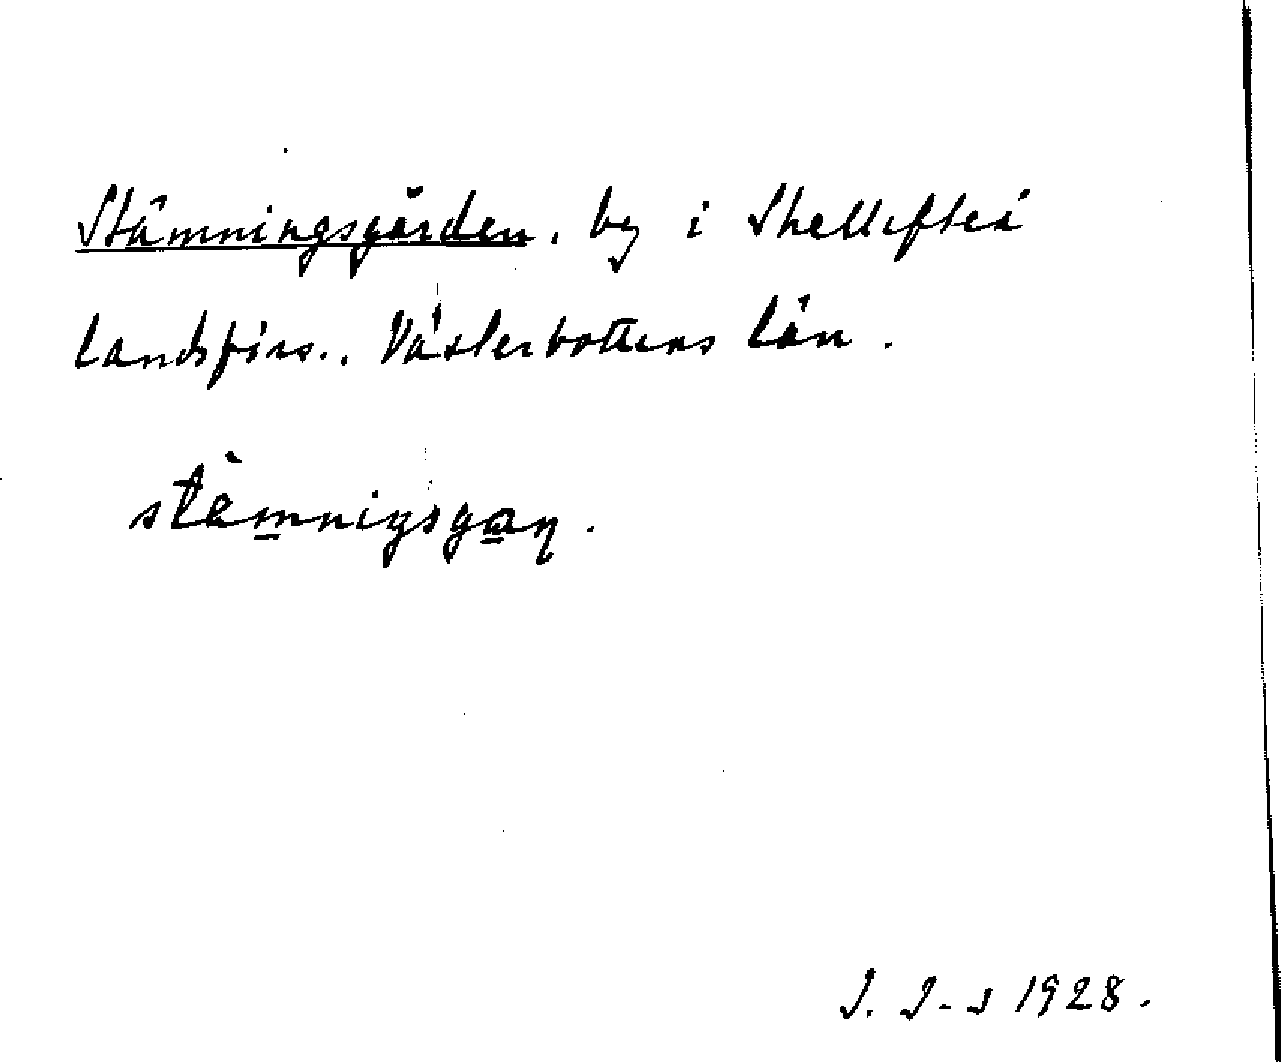 Stämningsgården, by i Skellefteå
landsförs., Västerbottens län.
stèmniŋsgaɳ.
J. J-s 1928.